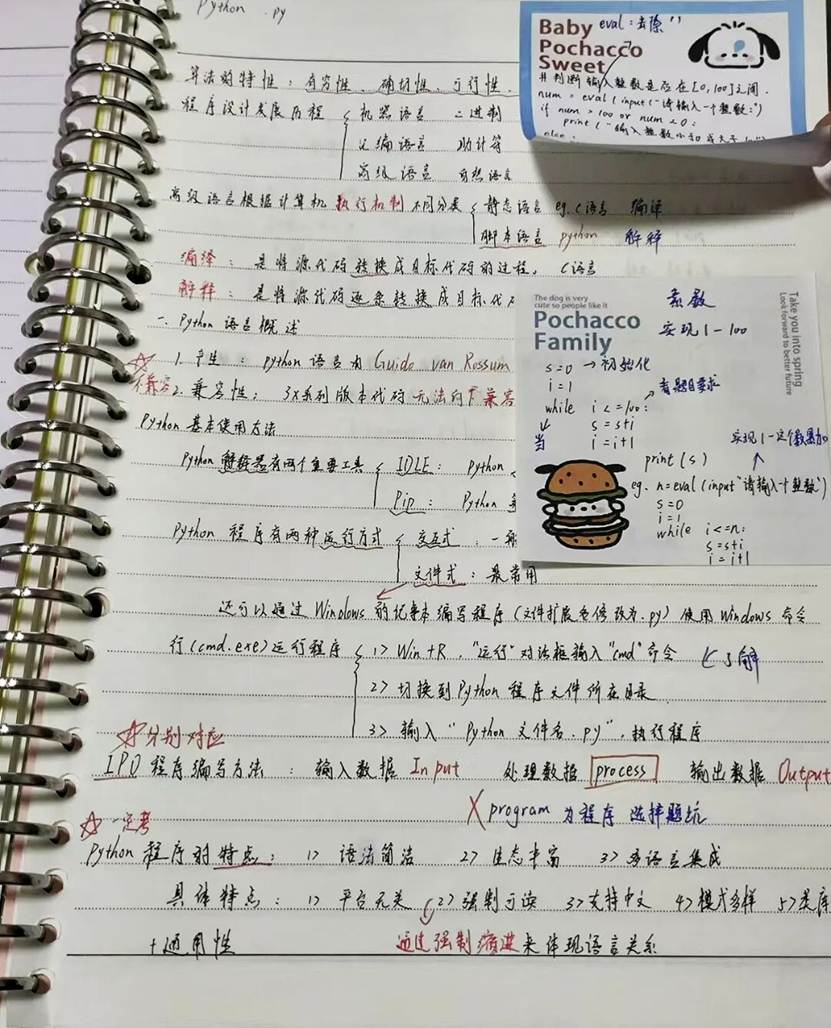 Python .py
算法的特性：有穷性、确切性、可行性、
程序设计发展历程 机器语言 二进制
汇编语言 助计符
高级语言 自然语言
高级语言根据计算机执行机制不同分类 静态语言 eg. C语言 编译
脚本语言 python 解释
编译：是将源代码转换成目标代码的过程。C语言
解释：是将源代码逐条转换成目标代
一、Python 语言概述
1. 产生：python 语言由 Guido van Rossum
不兼容 2. 兼容性：3X系列版本代码无法向下兼容
Python 基本使用方法
Python 解释器有两个重要工具 IDLE： Python
Pip： Python
Python 程序有两种运行方式 交互式：一般
文件式：最常用
还可以通过 Windows 的记事本编写程序(文件扩展名修改为.py) 使用 Windows 命令
行(cmd.exe)运行程序 1> Win+R，"运行"对话框输入"cmd"命令 了解
2> 切换到 Python 程序文件所在目录
3> 输入"Python 文件名.py"，执行程序
分别对应
IPO 程序编写方法：输入数据 Input 处理数据 process 输出数据 Output
X program 为程序 选择题坑
一定考
Python 程序的特点：1> 语法简洁 2> 生态丰富 3> 多语言集成
具体特点：1> 平台无关 2> 强制可读 3> 支持中文 4> 模式多样 5> 类库
+通用性 通过强制缩进来体现语言关系
Baby
Pochacco
Sweet
eval：去除''
#判断输入整数是否在[0,100]之间.
num = eval(input("请输入一个整数:")
if num > 100 or num < 0:
print("输入整数小于0或大于100"
else
The dog is very
cute so people like it
Pochacco
Family
Take you into spring
Look forward to better future
素数
实现1-100
s=0 →初始化
i=1
看题目要求
while i<=100:
当
s=s+i
i=i+1
print(s)
实现1-定个数累加
eg. n=eval(input"请输入一个整数")
s=0
i=1
while i<=n:
s=s+i
i=i+1